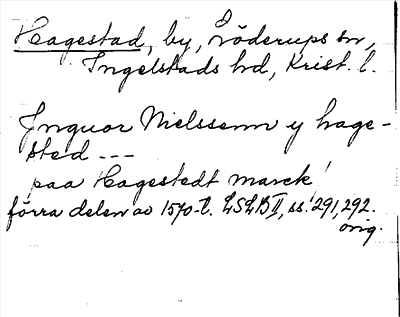 Hagestad, by, Löderups sn,
Ingelstads hd, Krist. l.
Jnguor Nielssenn y hage-
sted ---
paa Hagestedt marck
förra delen av 1570-t. LSLB II, ss. 291, 292.
orig.